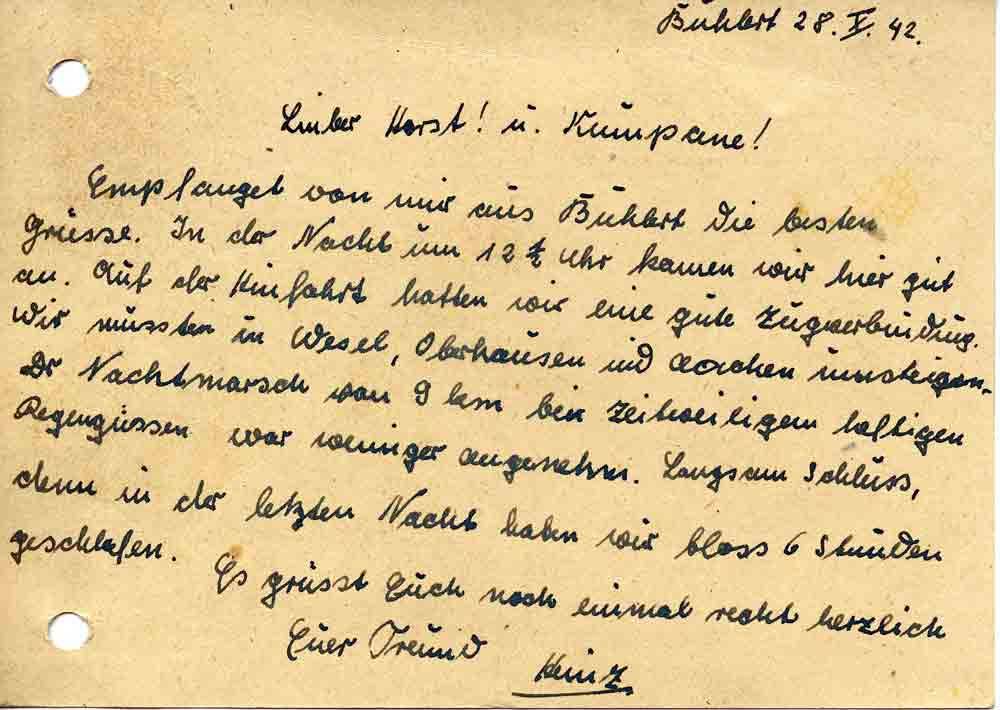 Bühlert 28. X. 42.
Lieber Horst! u. Kumpane!
Empfanget von mir aus Bühlert die besten
Grüsse. In der Nacht um 12 ½ Uhr kamen wir hier gut
an. Auf der Hinfahrt hatten wir eine gute Zugverbindung.
Wir mussten in Wesel, Oberhausen und Aachen umsteigen.
Der Nachtmarsch von 9 km bei zeitweiligem heftigen
Regengüssen war weniger angenehm. Langsam Schluss,
denn in der letzten Nacht haben wir bloss 6 Stunden
geschlafen.
Es grüsst Euch noch einmal recht herzlich
Euer Freund
Heinz